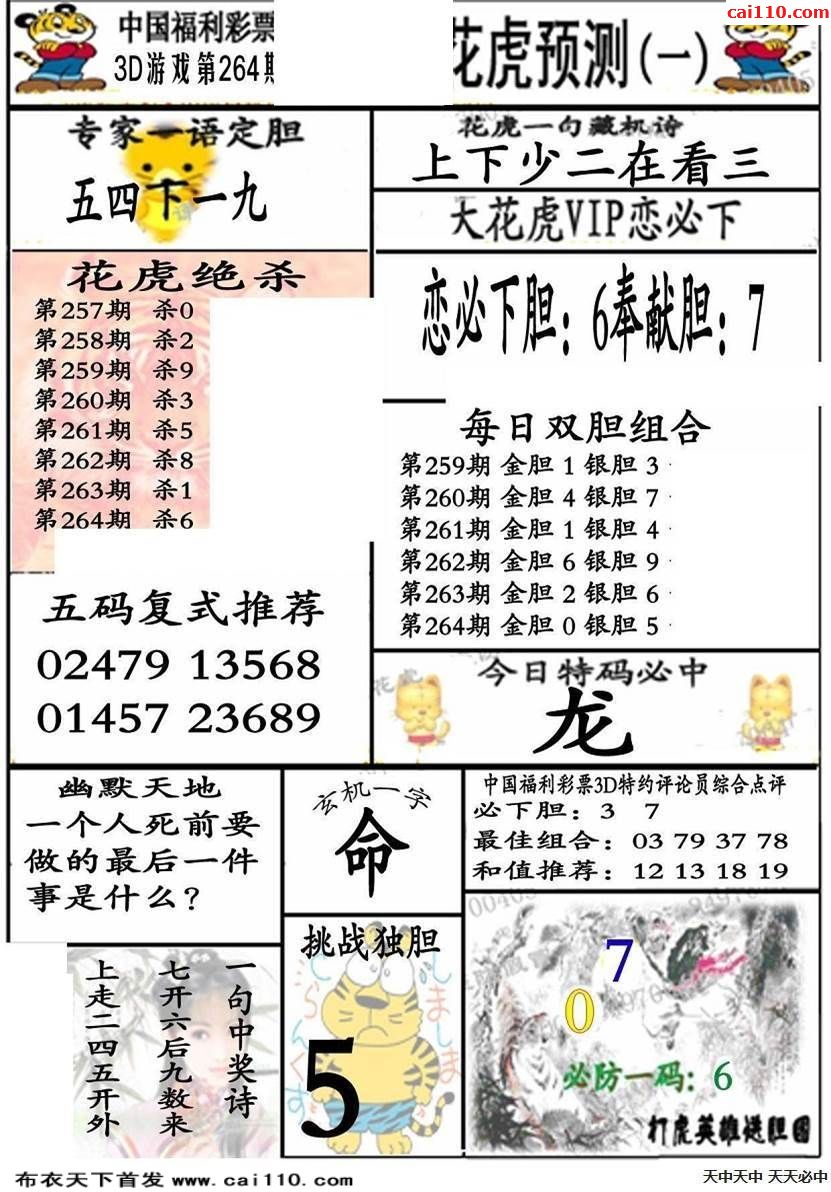 cai110.com
中国福利彩票
3D游戏第264期
花虎预测(一)
专家一语定胆
五四下一九
花虎一句藏机诗
上下少二在看三
大花虎VIP恋必下
花虎绝杀
第257期 杀0
第258期 杀2
第259期 杀9
第260期 杀3
第261期 杀5
第262期 杀8
第263期 杀1
第264期 杀6
恋必下胆：6奉献胆：7
每日双胆组合
第259期 金胆 1 银胆 3
第260期 金胆 4 银胆 7
第261期 金胆 1 银胆 4
第262期 金胆 6 银胆 9
第263期 金胆 2 银胆 6
第264期 金胆 0 银胆 5
五码复式推荐
02479 13568
01457 23689
今日特码必中
龙
幽默天地
一个人死前要
做的最后一件
事是什么？
玄机一字
命
中国福利彩票3D特约评论员综合点评
必下胆：3 7
最佳组合：03 79 37 78
和值推荐：12 13 18 19
一句中奖诗
七开六后九数来
上走二四五开外
挑战独胆
5
7
0
必防一码：6
打虎英雄送胆图
布衣天下首发 www.cai110.com
天中天中 天天必中